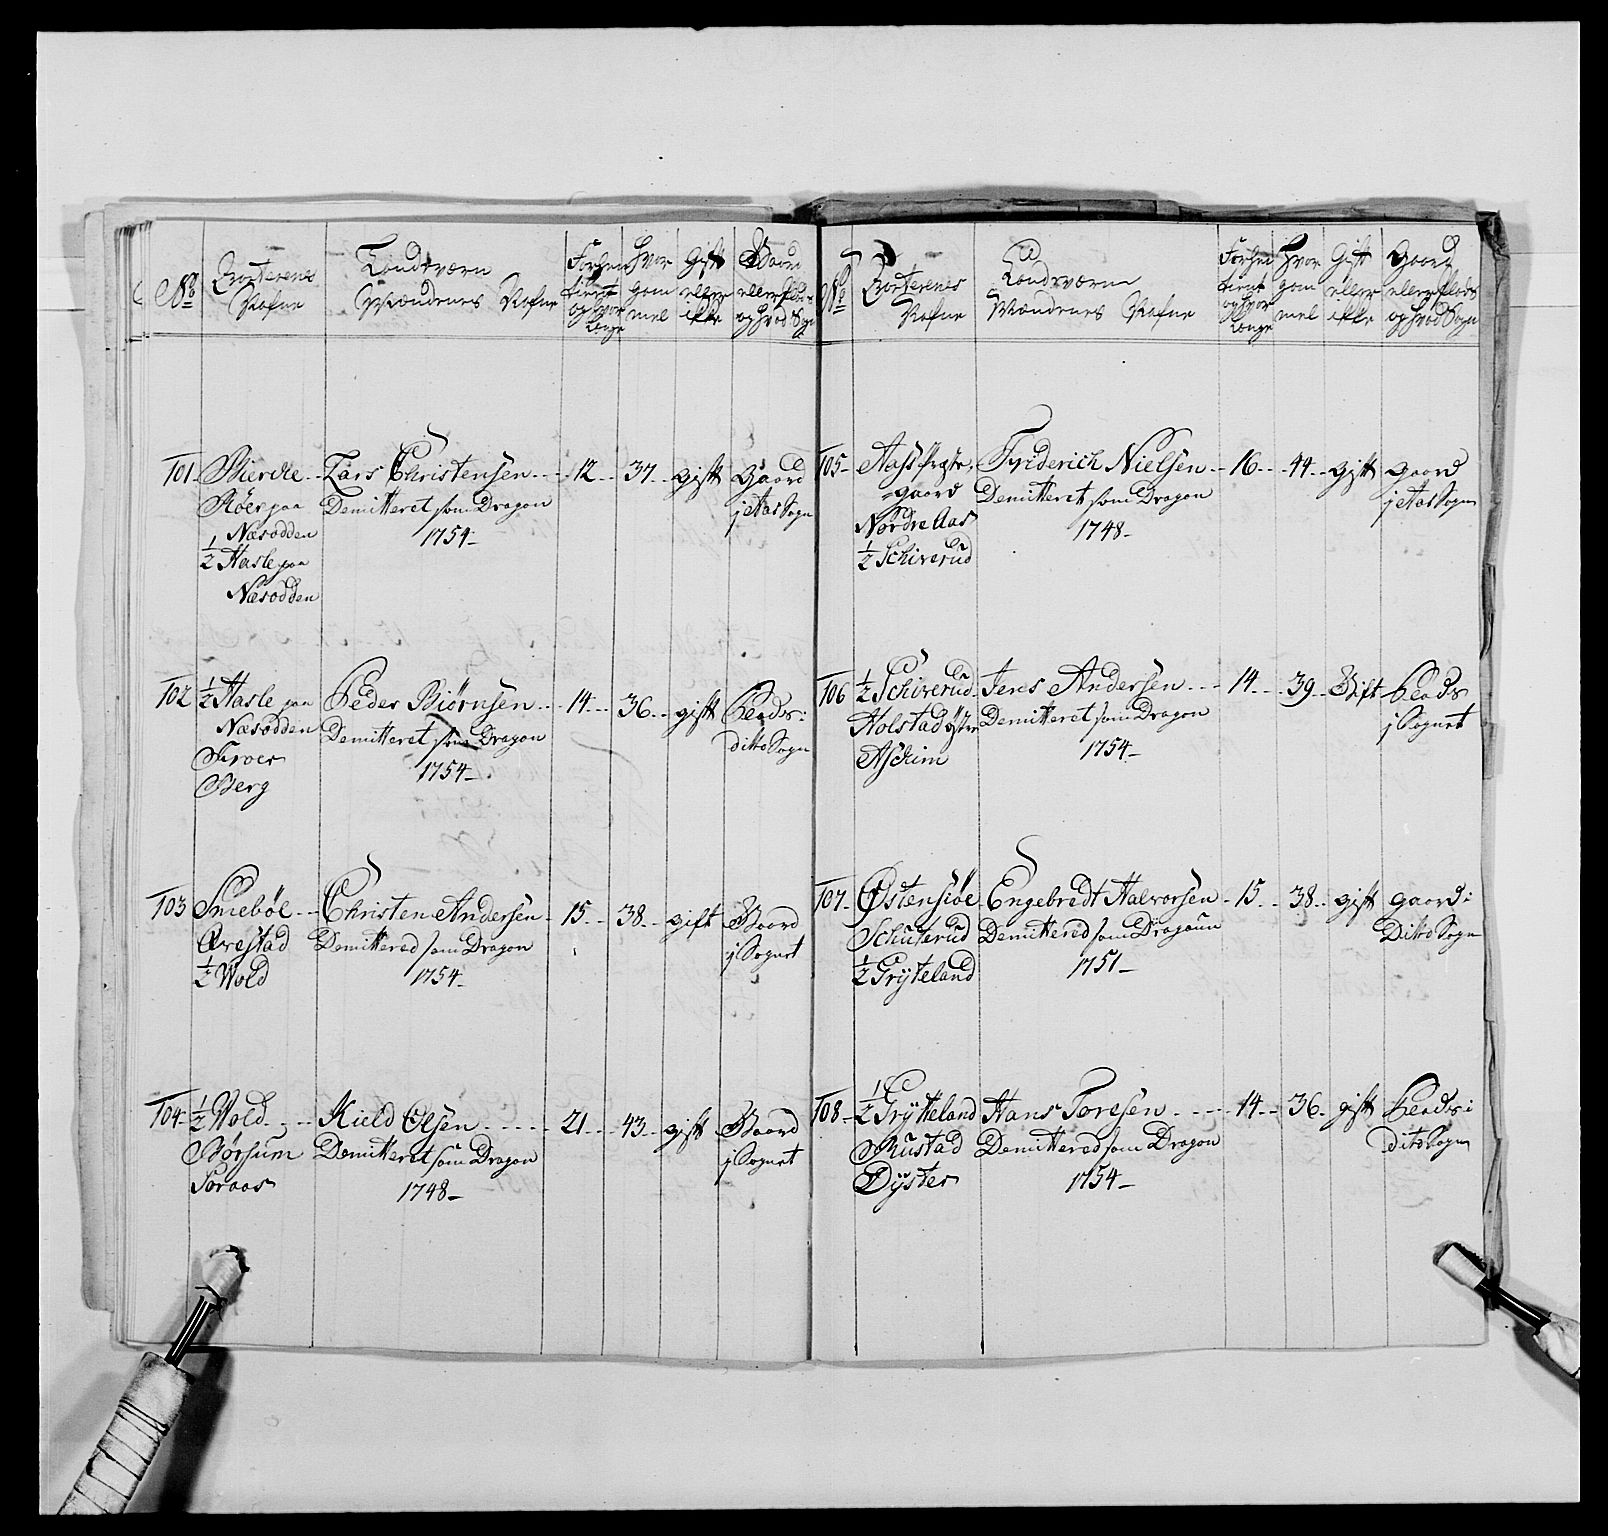 No
Qvarterenes
Nafne
Landværn
Mændenes Nafne
Forhen
tient
og hvor
længe
Hvor
gam
mel
Gift
eller
ikke
Gaard
eller plads
og hvad Sogn
101 Bierche
Røer paa
Næsodden
1/2 Hasle paa
Næsodden
Lars Christensen
Demitteret som Dragon
1754
12 37 gift
Gaard
i Aas Sogn
102 1/2 Hasle paa
Næsodden
Froer
Berg
Peder Biørnsen
Demitteret som Dragon
1754
14 36 gift
Plads i
ditto Sogn
103 Smebøl
Ørestad
1/2 Wold
Christen Andersen
Demittered som Dragon
1754
15 38 gift
Gaard
i Sognet
104 1/2 Wold
Børsum
Soraas
Kield Olsen
Demitteret som Dragon
1748
21 43 gift
Gaard
i Sognet
No
Qvarterenes
Nafne
Landværn
Mændenes Nafne
Forhen
tient
og hvor
længe
Hvor
gam
mel
Gift
eller
ikke
Gaard
eller plads
og hvad Sogn
105 Aass Præste
gaard
Nordre Aas
1/2 Schiverud
Friderich Nielsen
Demitteret som Dragon
1748
16 44 gift
gaard
i Aas Sogn
106 1/2 Schiverud
Holstad østre
Aschim
Jens Andersen
Demitteret som Dragon
1754
14 39 Gift
Plads
i Sognet
107 Østensiøe
Schuterud
1/2 Grÿteland
Engebredt Halvorsen
Demittered som Dragoun
1751
15 38 gift
gaard i
Ditto Sogn
108 1/2 Grÿtteland
Rustad
Dÿster
Hans Toresen
Demittered som Dragon
1754
14 36 gift
Plads i
dito Sogn